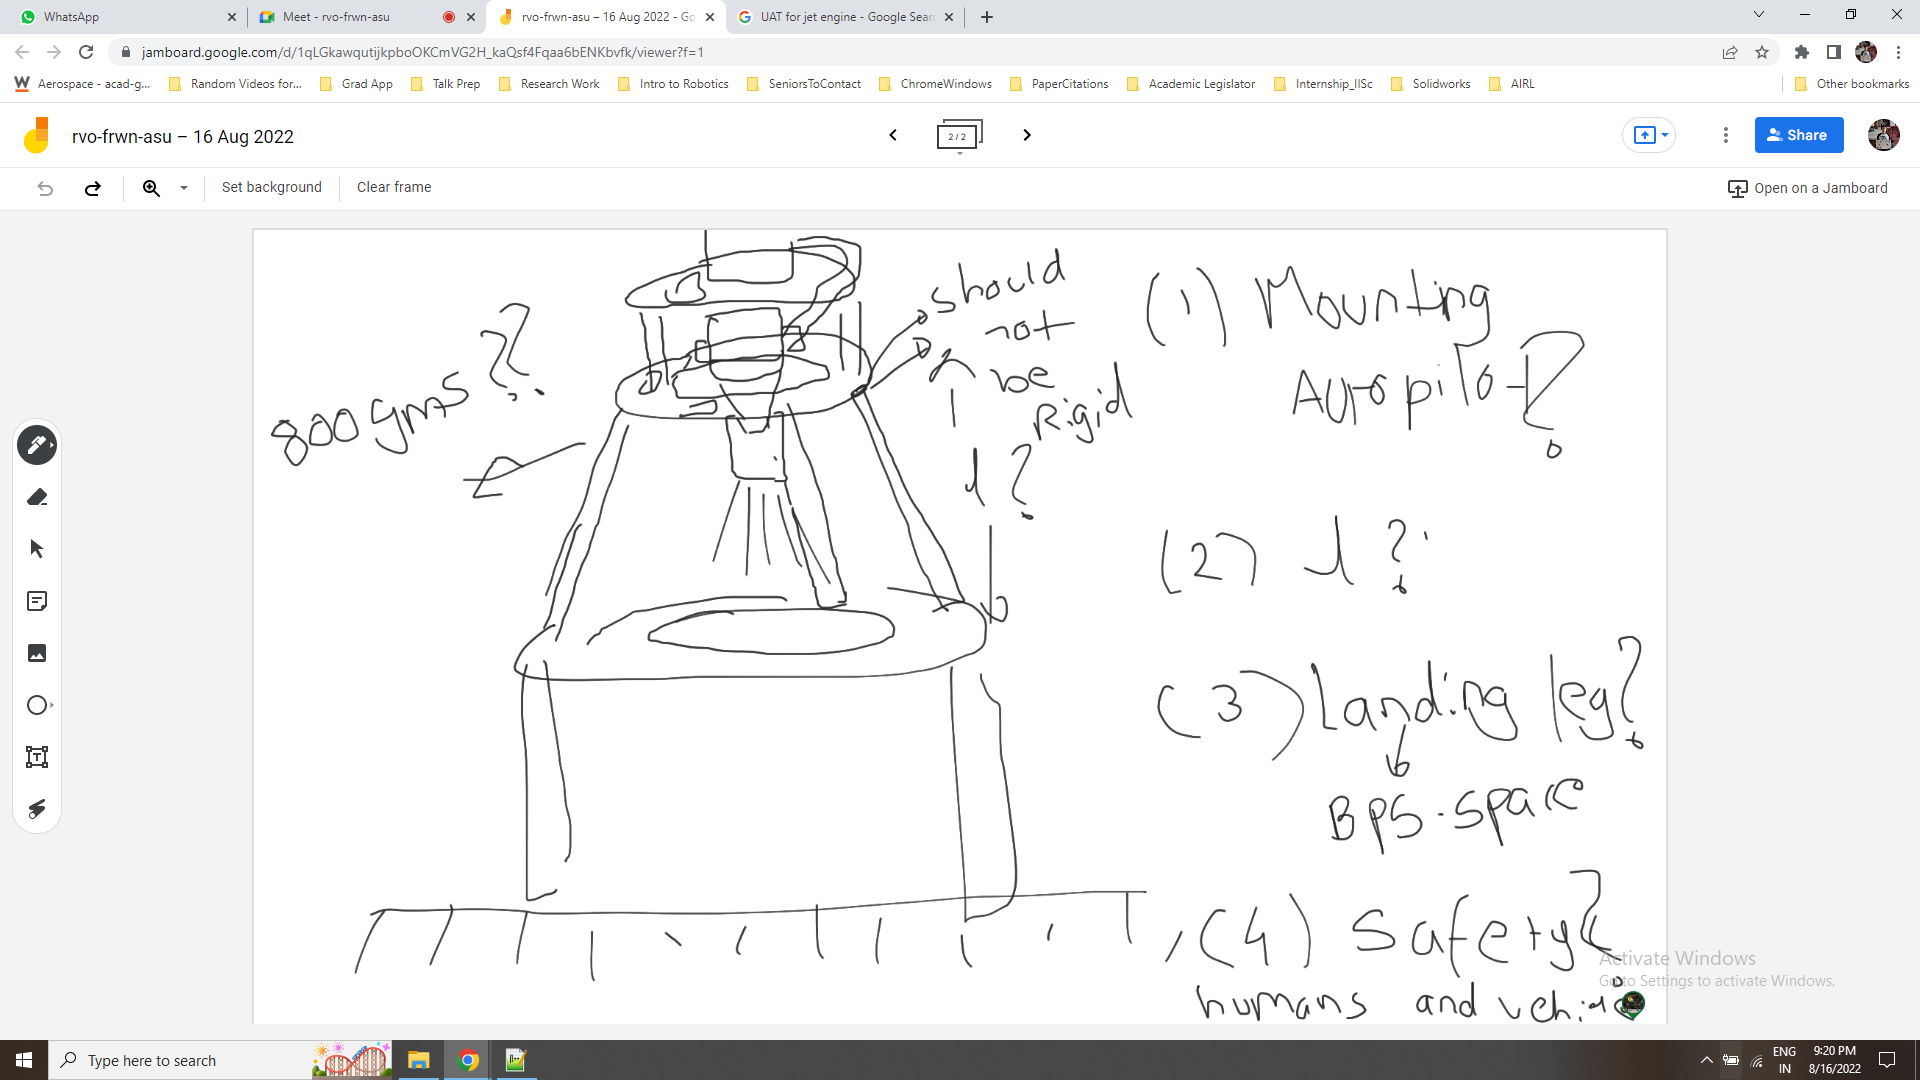 WhatsApp
Meet - rvo-frwn-asu
rvo-frwn-asu – 16 Aug 2022 - Go
UAT for jet engine - Google Sear
jamboard.google.com/d/1qLGkawqutijkpboOKCmVG2H_kaQsf4Fqaa6bENKbvfk/viewer?f=1
Aerospace - acad-g...
Random Videos for...
Grad App
Talk Prep
Research Work
Intro to Robotics
SeniorsToContact
ChromeWindows
PaperCitations
Academic Legislator
Internship_IISc
Solidworks
AIRL
Other bookmarks
rvo-frwn-asu – 16 Aug 2022
2 / 2
Share
Set background
Clear frame
Open on a Jamboard
800 gms ??
should
not
be
Rigid
l ?
(1) Mounting
Auropilo-?
(2) l ?
(3) Landing leg?
BPS-space
(4) Safety?
humans and
Activate Windows
Go to Settings to activate Windows.
Type here to search
ENG
IN
9:20 PM
8/16/2022